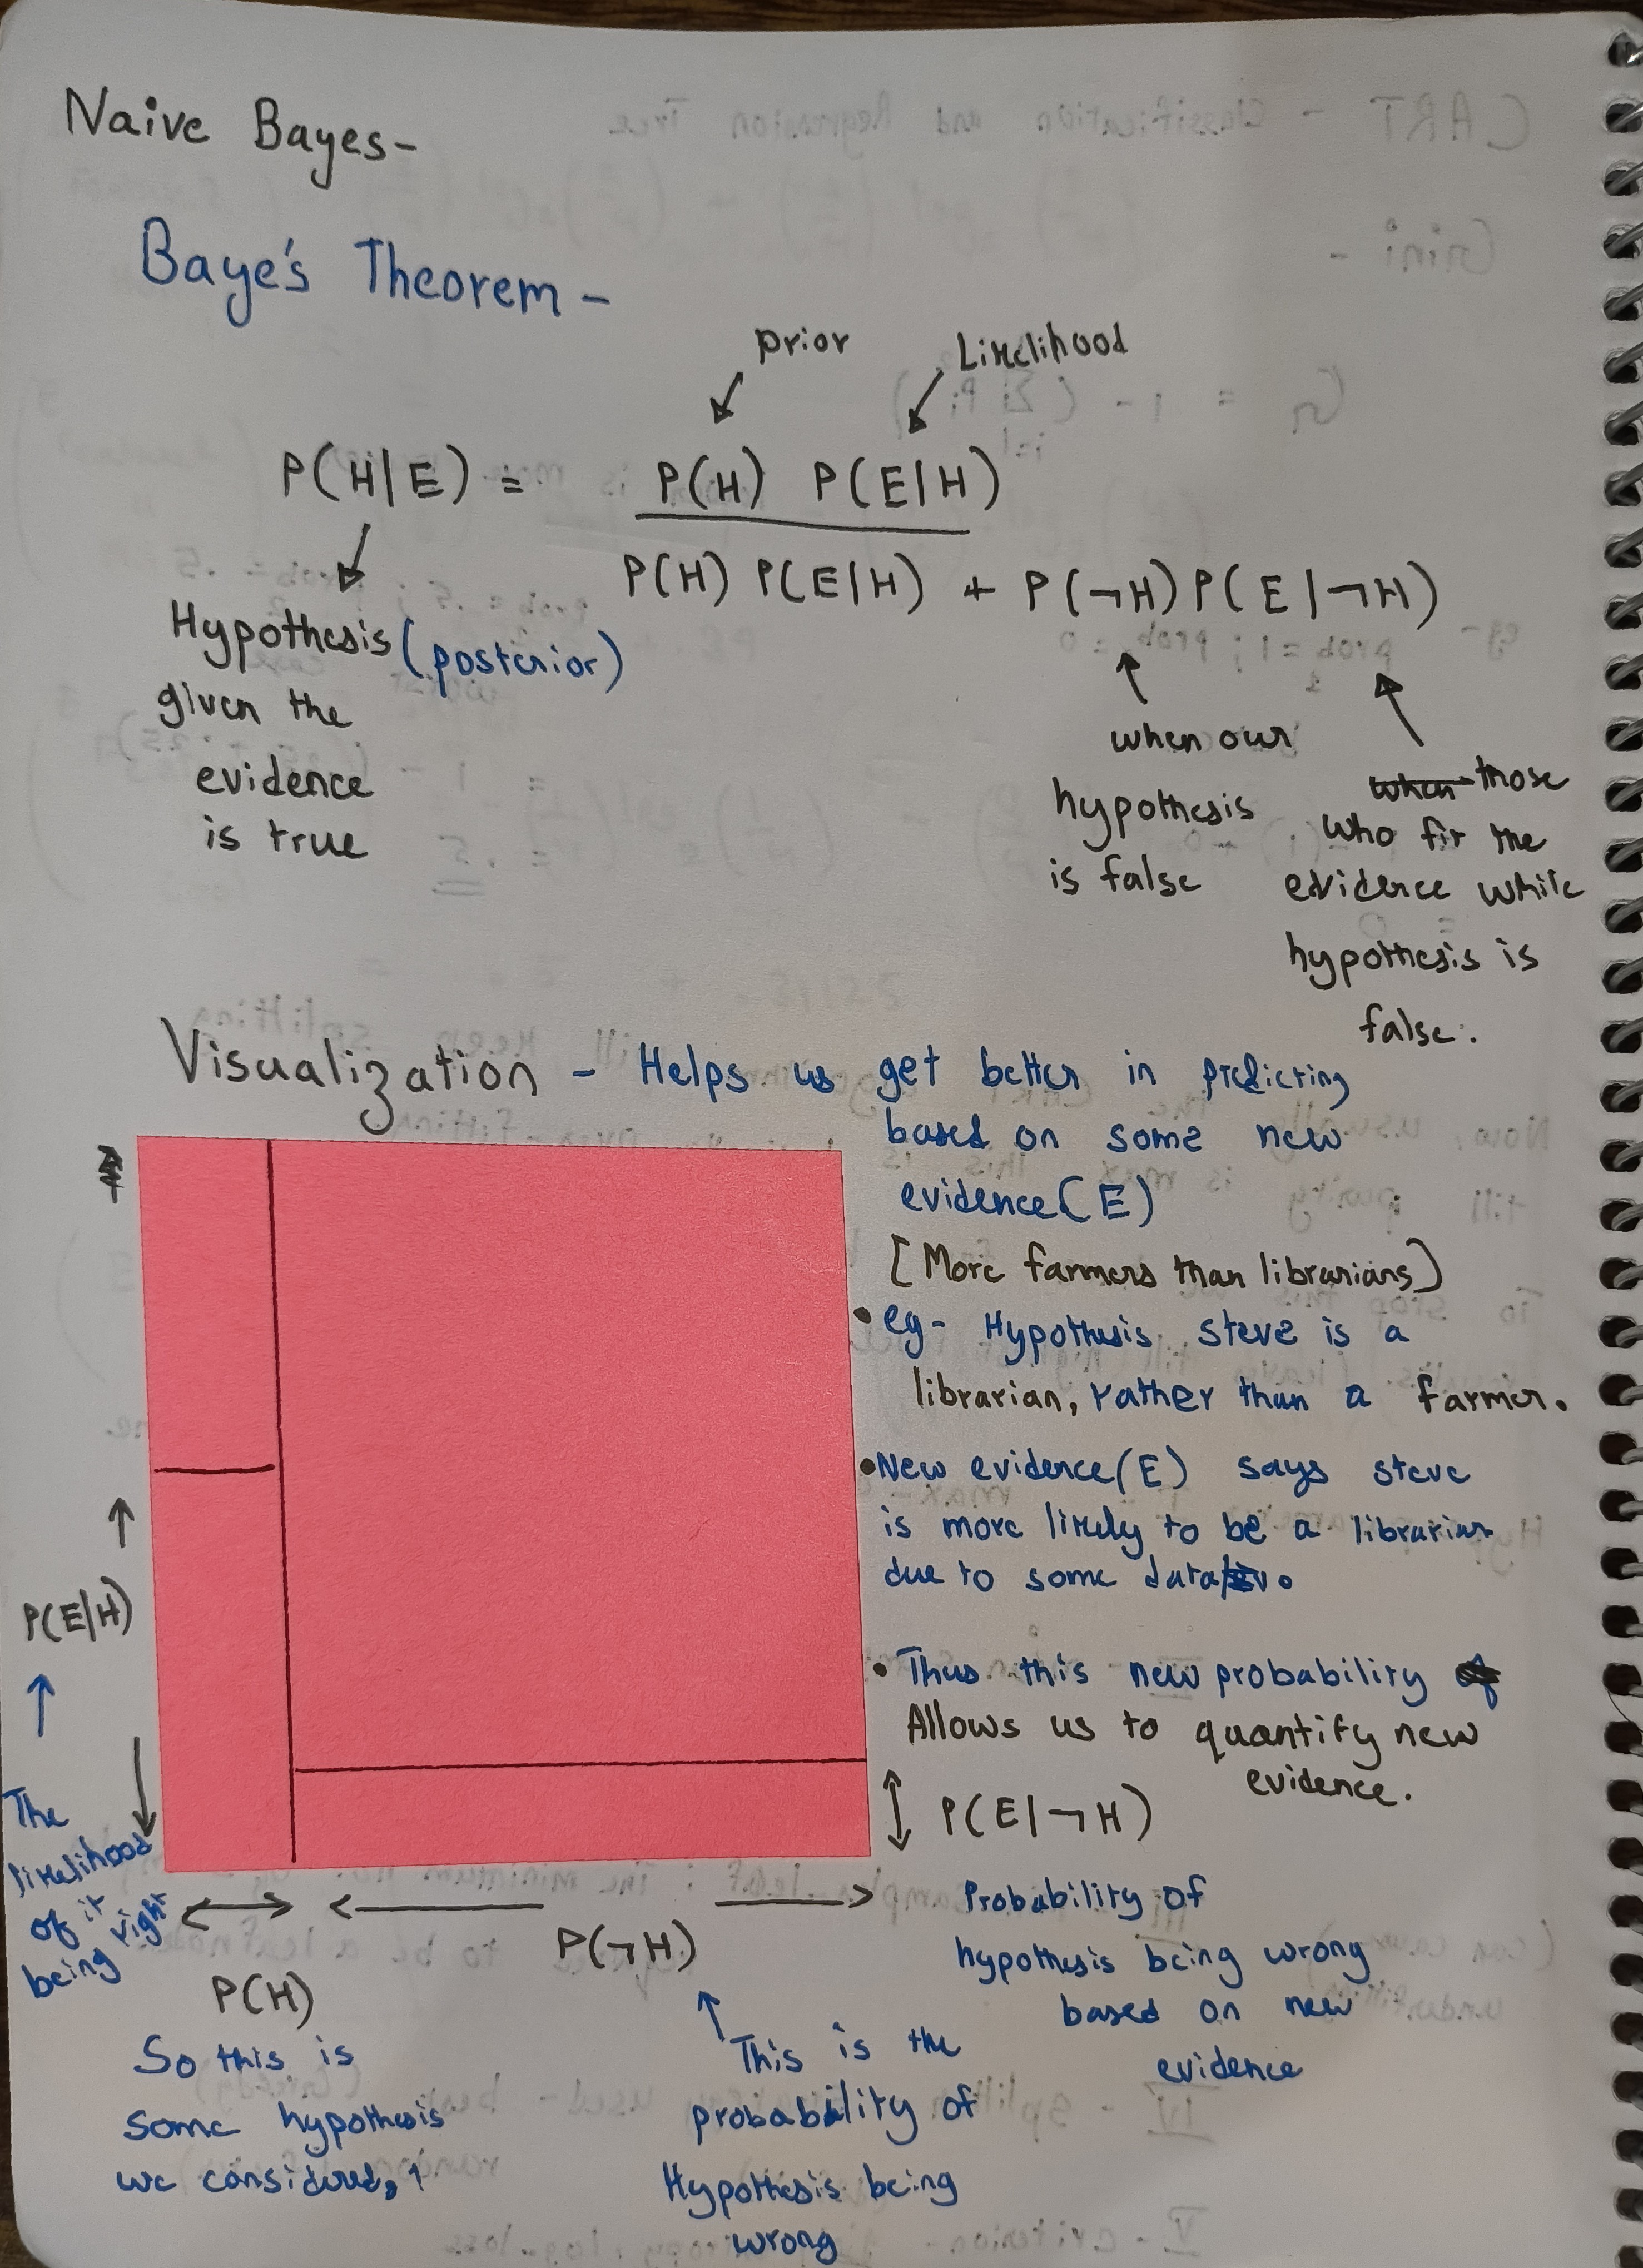 Naive Bayes-
Baye's Theorem -
prior
Likelihood
P(H|E) = P(H) P(E|H)
P(H) P(E|H) + P(¬H) P(E|¬H)
Hypothesis (posterior)
given the
evidence
is true
when our
hypothesis
is false
when those
who fit the
evidence while
hypothesis is
false.
Visualization - Helps us get better in predicting
based on some new
evidence (E)
[More farmers than librarians)
• eg- Hypothesis steve is a
librarian, rather than a farmer.
• New evidence (E) says steve
is more likely to be a librarian
due to some data
• Thus this new probability
Allows us to quantify new
evidence.
P(E|H)
The
likelihood
of it
being right
P(E|¬H)
Probability of
hypothesis being wrong
based on new
evidence
P(H)
So this is
some hypothesis
we considered,
P(¬H)
This is the
probability of
Hypothesis being
wrong